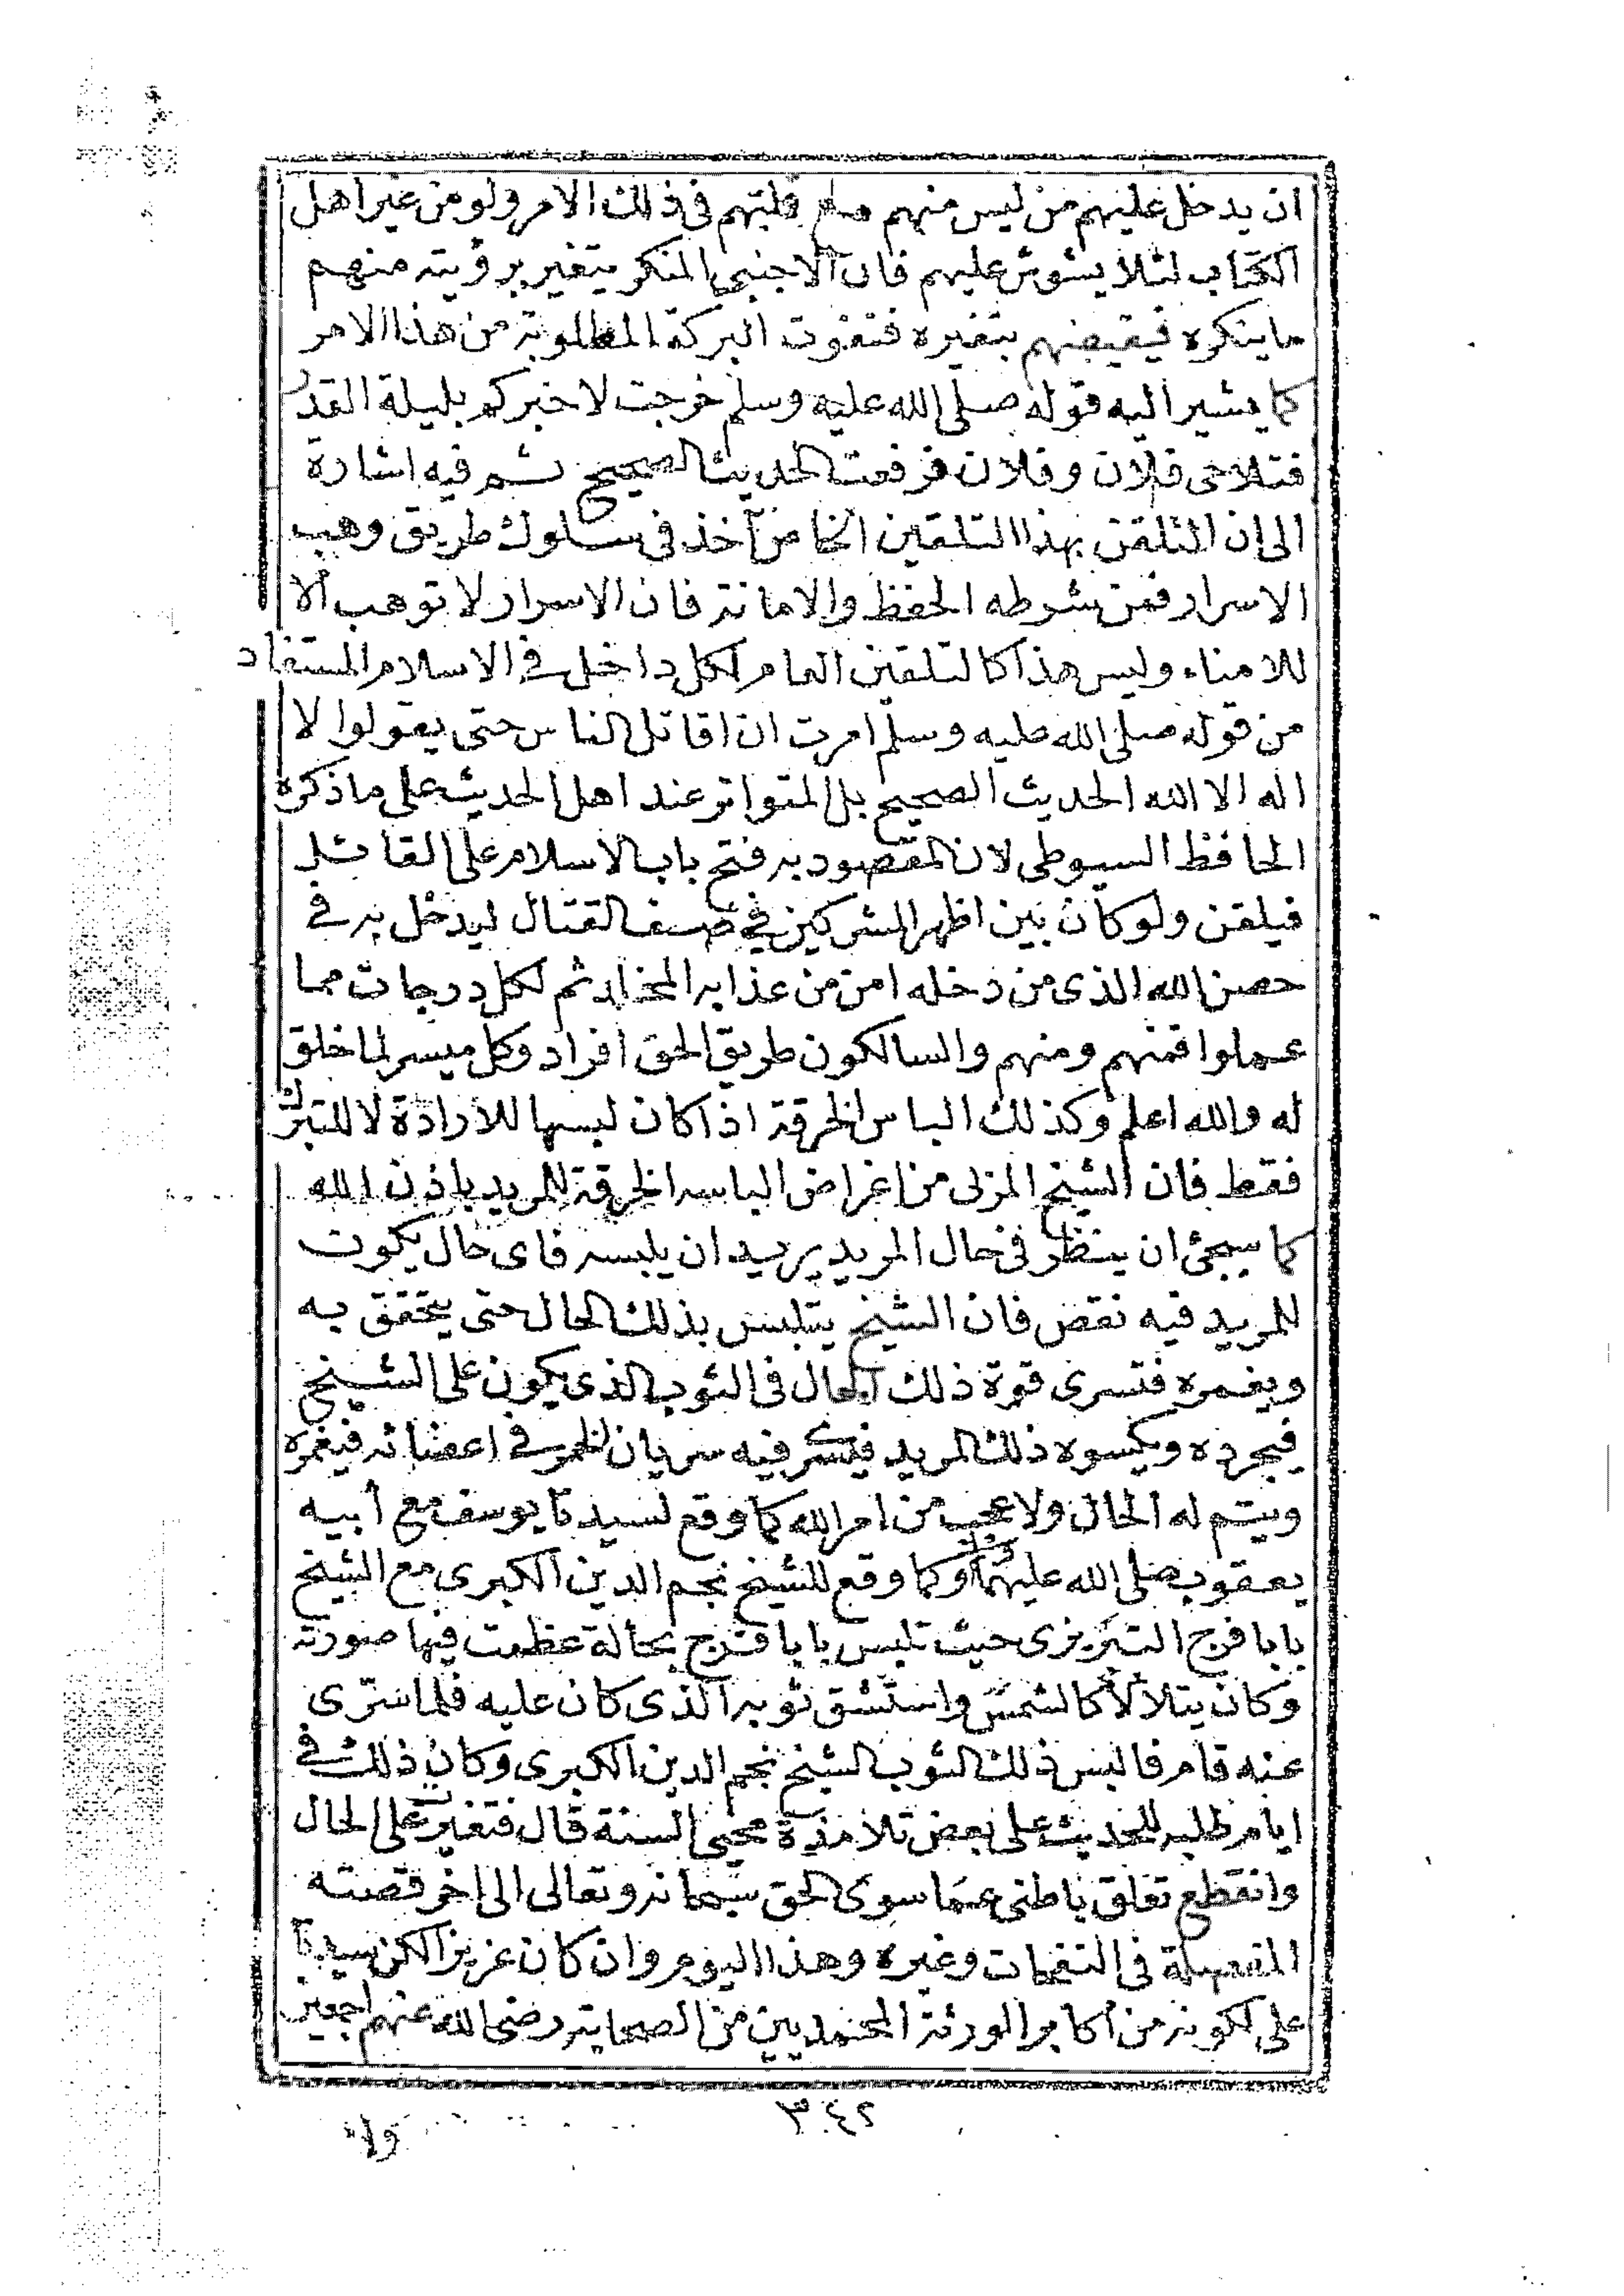 ان يدخل عليهم من ليس منهم قلبهم فى ذلك الامر ولو من غير اهل
الكتاب لئلا يشوش عليهم فان الاجنبى المنكر يتغير برؤيته منهم
ماينكره فيقيضهم بتغيره فتفوت البركة المطلوبة من هذا الامر
كما يشير اليه قوله صلى الله عليه وسلم خرجت لاخبركم بليلة القدر
فتلاحى فلان وفلان فرفعت الحديث الصحيح ثم فيه اشارة
الى ان التلقن بهذا التلقين الخاص آخذ فى سلوك طريق وهب
الاسرار فمن شرطه الحفظ والامانة فان الاسرار لا توهب الا
للامناء وليس هذا كالتلقين العام لكل داخل فى الاسلام المستفاد
من قوله صلى الله عليه وسلم امرت ان اقاتل الناس حتى يقولوا لا
اله الا الله الحديث الصحيح بل المتواتر عند اهل الحديث على ما ذكره
الحافظ السيوطى لان المقصود به فتح باب الاسلام على القائل
فيلقن ولو كان بين اظهر المشركين فى صف القتال ليدخل به فى
حصن الله الذى من دخله امن من عذابه المخلد ثم لكل درجات مما
عملوا فمنهم ومنهم والسالكون طريق الحق افراد وكل ميسر لما خلق
له والله اعلم وكذلك الباس الخرقة اذا كان لبسها للارادة لا للتبرك
فقط فان الشيخ المزلى من اغراض الباسه الخرقة للمريد باذن الله
كما سيجئ ان ينظر فى حال المريد يريد ان يلبسه فاى حال يكون
للمريد فيه نقص فان الشيخ يتلبس بذلك الحال حتى يتحقق به
ويغمره فتسرى قوة ذلك الحال فى الثوب الذى يكون على الشيخ
فيجرده ويكسوه ذلك المريد فيسرى فيه سريان الخمر فى اعضائه فيغمره
ويتم له الحال ولا عجب من امر الله كما وقع لسيدنا يوسف مع أبيه
يعقوب صلى الله عليهما وكما وقع للشيخ نجم الدين الكبرى مع الشيخ
بابا فرج التبريزى حيث تلبس بابا فرج بحالة عظمت فيها صورته
وكان يتلألأ كالشمس وانشق ثوبه الذى كان عليه فلما سرّى
عنه قام فالبس ذلك الثوب الشيخ نجم الدين الكبرى وكان ذلك فى
ايام طلبه للحديث على بعض تلامذة محيى السنة قال فتغير على الحال
وانقطع تعلق باطنى عما سوى الحق سبحانه وتعالى الى اخر قصته
المفصلة فى النفحات وغيره وهذا اليوم وان كان عزيزا لكن سيدنا
على لكونه من اكابر الورثة المحمديين من الصحابة رضى الله عنهم اجمعين
٣٤٢